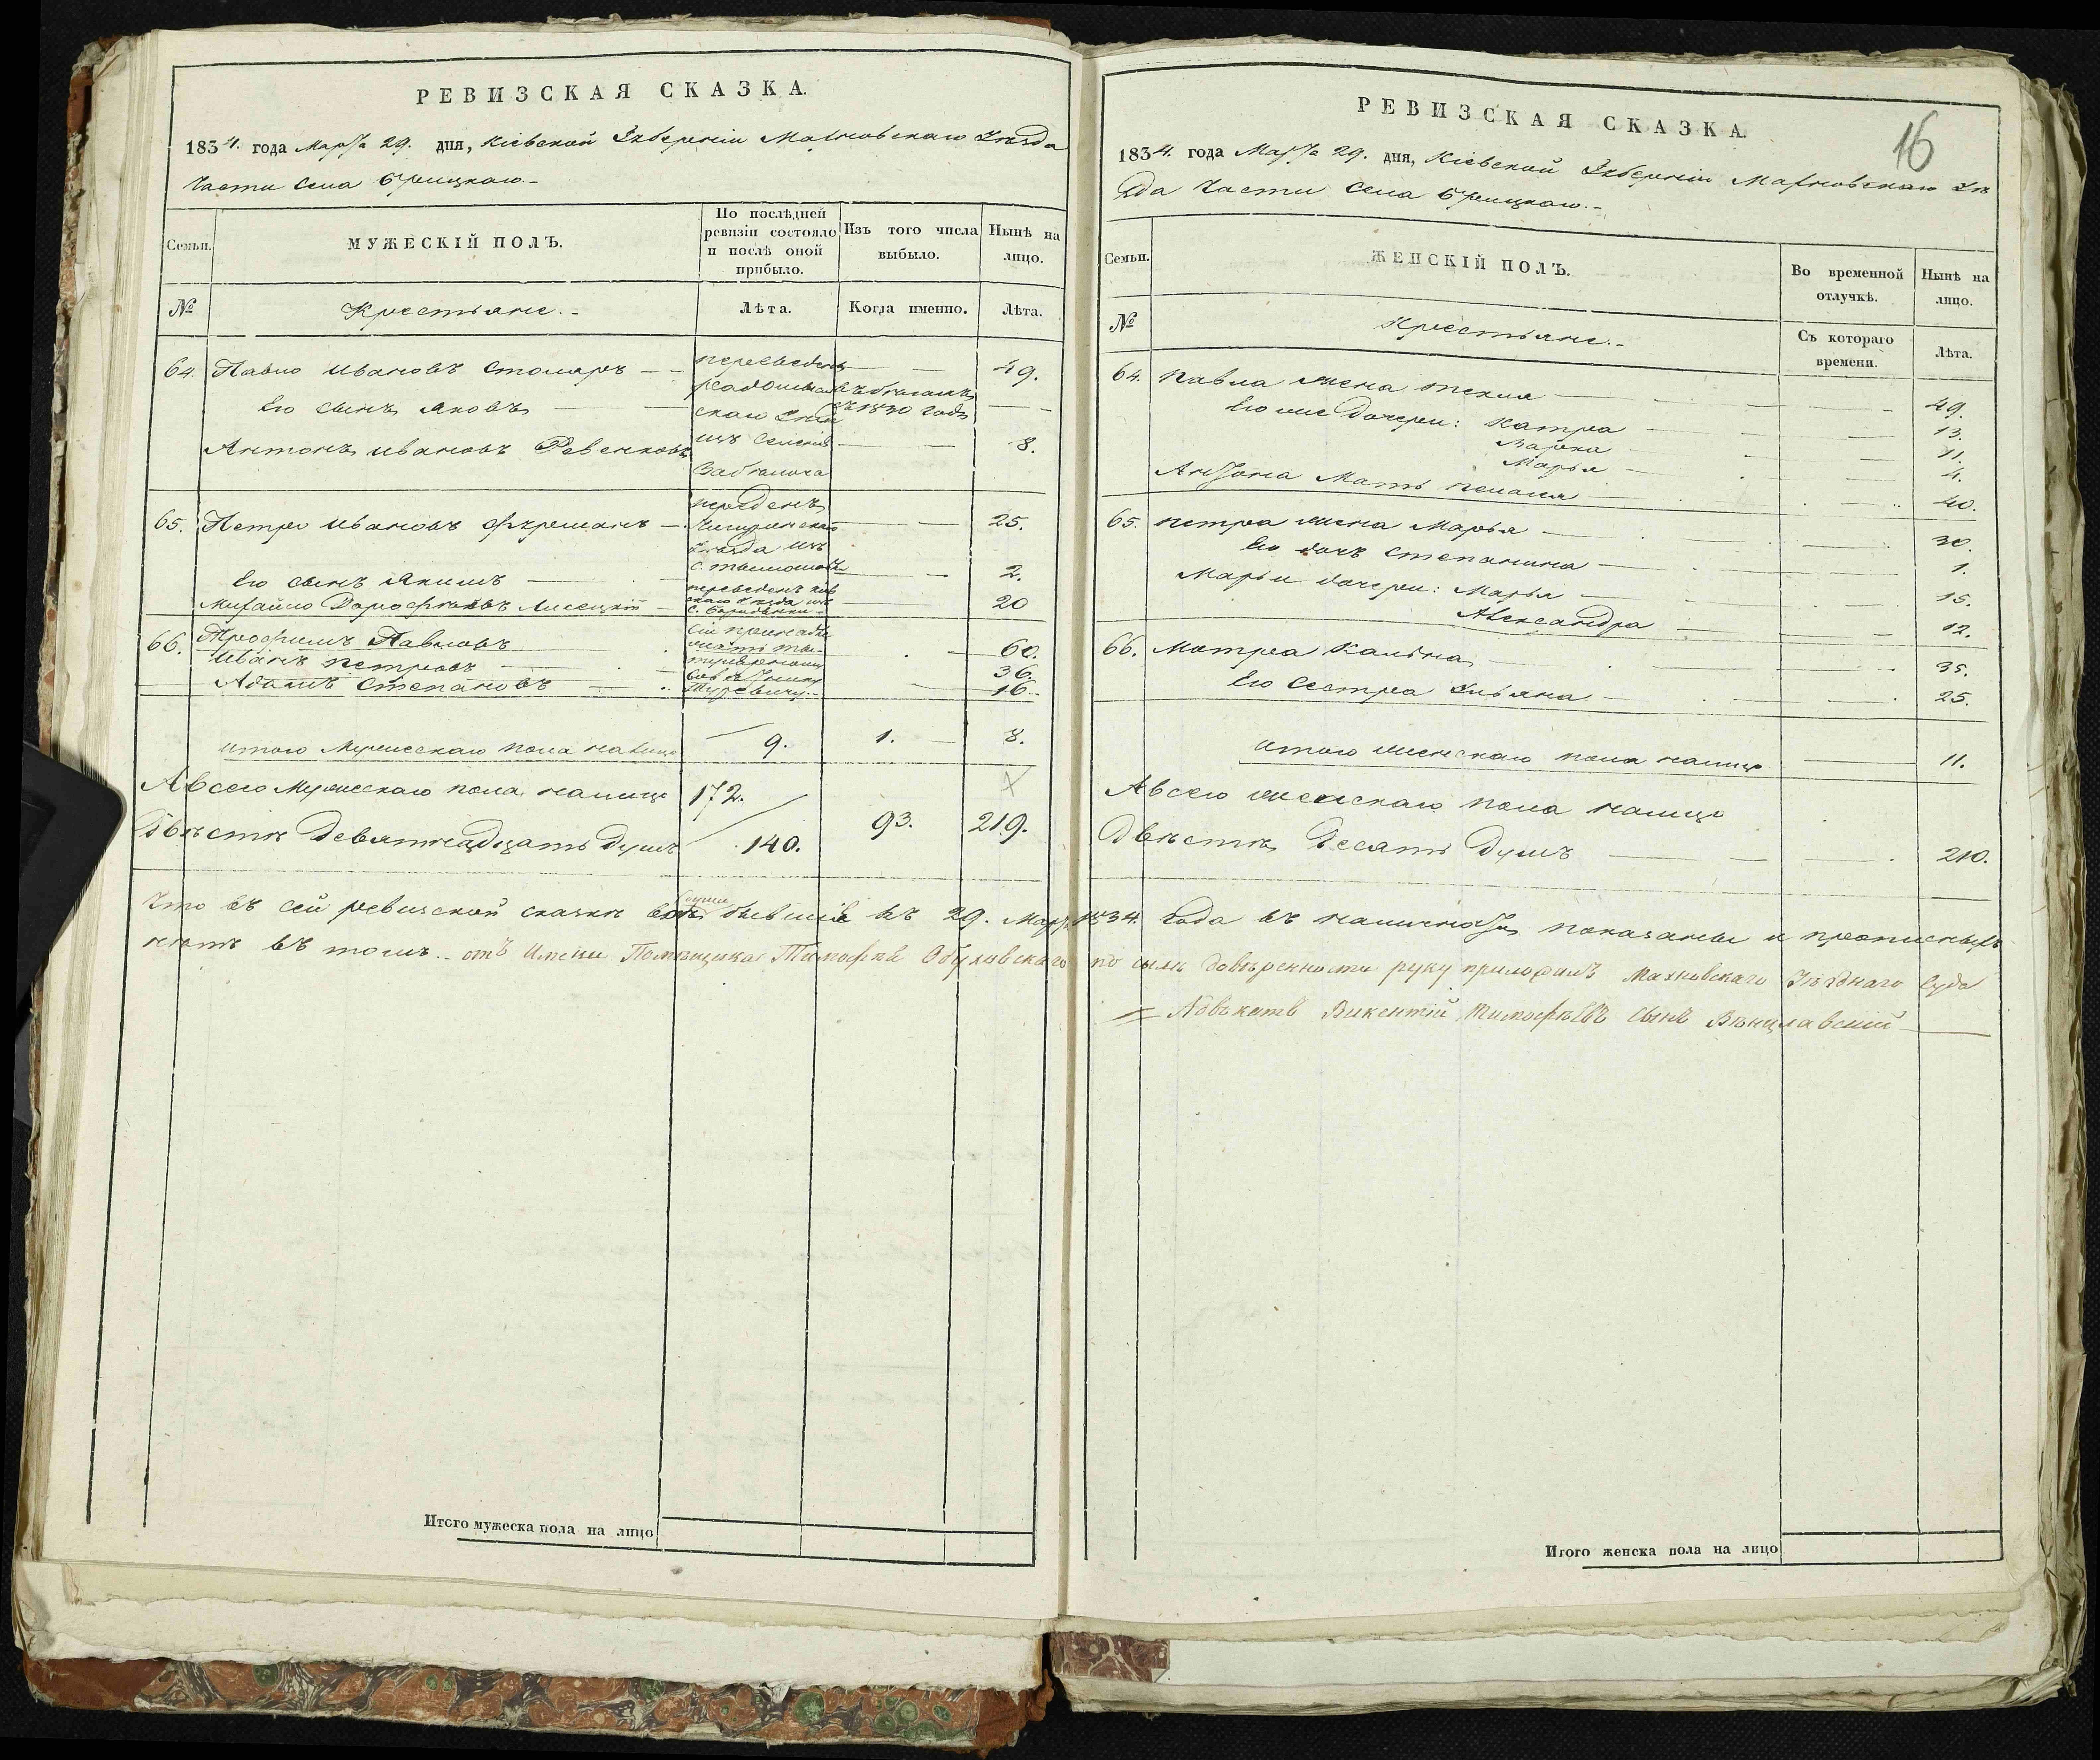 РЕВИЗСКАЯ СКАЗКА.
1834. года Марта 29. дня, Кіевской Губерніи Махновскаго Уѣзда
Части Села
Семьи.
МУЖЕСКІЙ ПОЛЪ.
По послѣдней ревизіи состояло и послѣ оной прибыло.
Изъ того числа выбыло.
Нынѣ на лицо.
№
Крестьяне.-
Лѣта.
Когда именно.
Лѣта.
64. Павло Ивановъ Столяръ — переведенъ — 49.
Его сынъ Яковъ въ 1830 годѣ
Антонъ Ивановъ изъ селенія — 8.
65. Петро Ивановъ — 25.
Уѣзда изъ
Его сынъ Якимъ — 2.
Михайло — переведенъ — 20
66. Трофимъ Павловъ — 60.
Иванъ Петровъ — 36.
Адамъ Степановъ — 16.
Итого Мужескаго пола налицо 9. 1. 8.
А всего Мужескаго пола налицо 172.
Двѣсти девятнадцать душъ 140. 93. 219.
Что въ сей ревизской сказкѣ всѣ души бывшіе къ 29. Марта 1834. года въ наличности показаны и прописныхъ
нѣтъ въ томъ. отъ Имени Помѣщика Тимофѣя Обуховскаго по силѣ довѣренности руку приложилъ Махновскаго Уѣзднаго Суда
Адвокатъ Викентій Тимофѣевъ сынъ
Итого мужеска пола на лицо
РЕВИЗСКАЯ СКАЗКА.
16
1834. года Марта 29. дня, Кіевской Губерніи Махновскаго Уѣ
зда Части Села
Семьи.
ЖЕНСКІЙ ПОЛЪ.
Во временной отлучкѣ.
Нынѣ на лицо.
№
Крестьяне.-
Съ котораго времени.
Лѣта.
64. Павла жена Текля — 49.
Его же дочери: Катра — 13.
Варка — 11.
Марья — 4.
Антона Мать — 40.
65. Петра жена Марья — 30.
Его дочь Степанина — 1.
Марьи дочери: Марья — 15.
Александра — 12.
66. Мотра — 35.
Его Сестра Ульяна — 25.
Итого женскаго пола налицо — 11.
А всего женскаго пола налицо
Двѣсти Десять Душъ — 210.
Итого женска пола на лицо